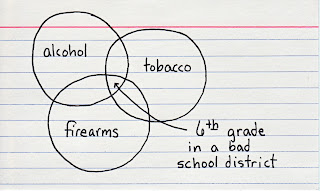 alcohol
tobacco
firearms
6th grade
in a bad
school district